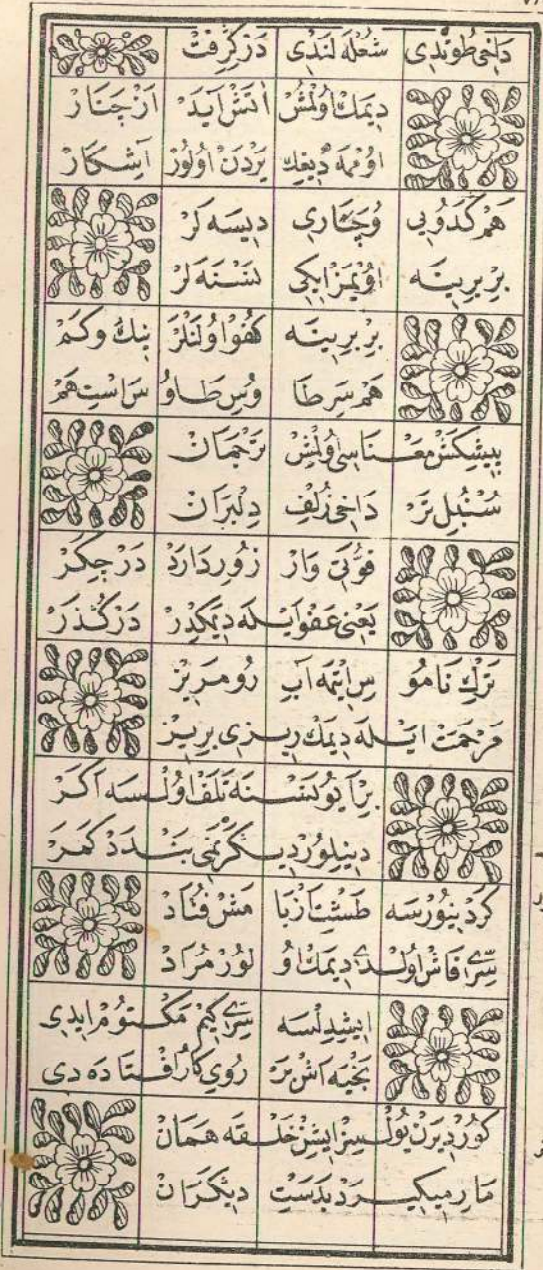 دَاخِی طُوتْدِی شُعْلَه لَنْدِی دَرْكِرِفْتْ
دِیمَكْ اُولْمُشْ اٰتَشْ اٰیَدْ اَزْ چَنَارْ
اُومْمَه دِیغِكْ یَرْدَنْ اُولُورْ اٰشِكَارْ
هَمْ كَدُویِی وُچَنَارِی دِیسَه لَرْ
بِرْ بِرِینَه اُویْمَزْ اِیكِی نَسْنَه لَرْ
بِرْ بِرِینَه كُفُوْ اُولَنْلَرْ بِیكْ وكَمْ
هَمْ سَرِطَا وُسِ طَاوُ سَ اسْتْ هَمْ
پِیشْكَشْ مَعْنَاسِی اُولْمُشْ تَرْجُمَانْ
سُنْبُلِ تَرْ دَاخِی زُلْفِ دِلْبَرَانْ
قُوَّتِی وَارْ زُورْ دَارَدْ دَرْ جِكَرْ
یَعْنِی عَفْو اَیْلَه دِیمَكْدِرْ دَرْكُذَرْ
تَرْكِ نَامُو سِ اِیتْمَه اٰبِ رُو مَرِیزْ
مَرْحَمَتْ اَیْلَه دِیمَكْ رِیزِی بِرِیزْ
بِرْ اَیُو نَسْنَه تَلَفْ اُولْسَه اَكَرْ
دِینِلُورْ دِیكَرْ نَمِی بَنْدَدْ كَمَرْ
كَرْدِ بِیُورْسَه طَشْتِ اَزْ بَا مَشْ فُتَادْ
سِرِّی فَاشْ اُولْدِی دِیمَكْ اُو لُورْ مُرَادْ
اِیشِدِلْسَه سِرِّی كِیمْ مَكْتُومْ اِیدِی
بَخْیَه اَشْ بَرْ رُویِ كَارْ اُفْتَادَه دِی
كُورْ دِیرَنْ یُولْسِزْ اِیشِنْ خَلْقَه هَمَانْ
مَارْ مِیكِیرَدْ بَدَسْتِ دِیكَرَانْ